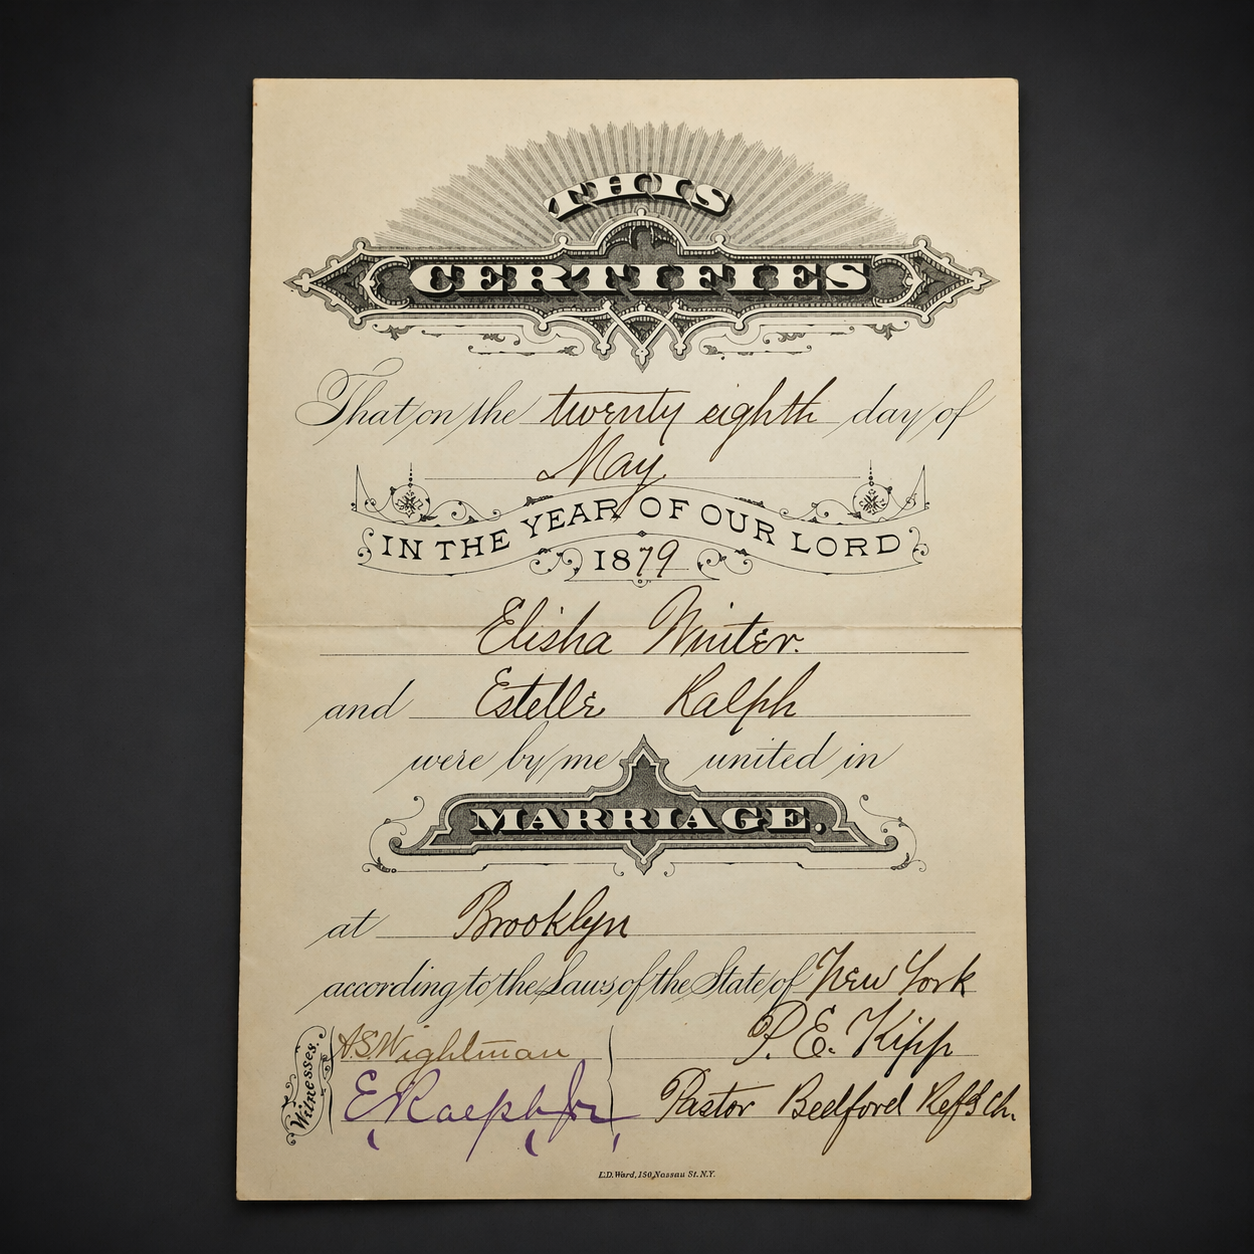 THIS
CERTIFIES
That on the twenty eighth day of
May
IN THE YEAR OF OUR LORD
1879
Elisha Winter.
and Estelle Ralph
were by me united in
MARRIAGE.
at Brooklyn
according to the Laws of the State of New York
Witnesses.
A.S. Wightman
E Ralph Jr
P. E. Kipp
Pastor Bedford Ref'd Ch.
L.D. Ward, 150, Nassau St. N.Y.